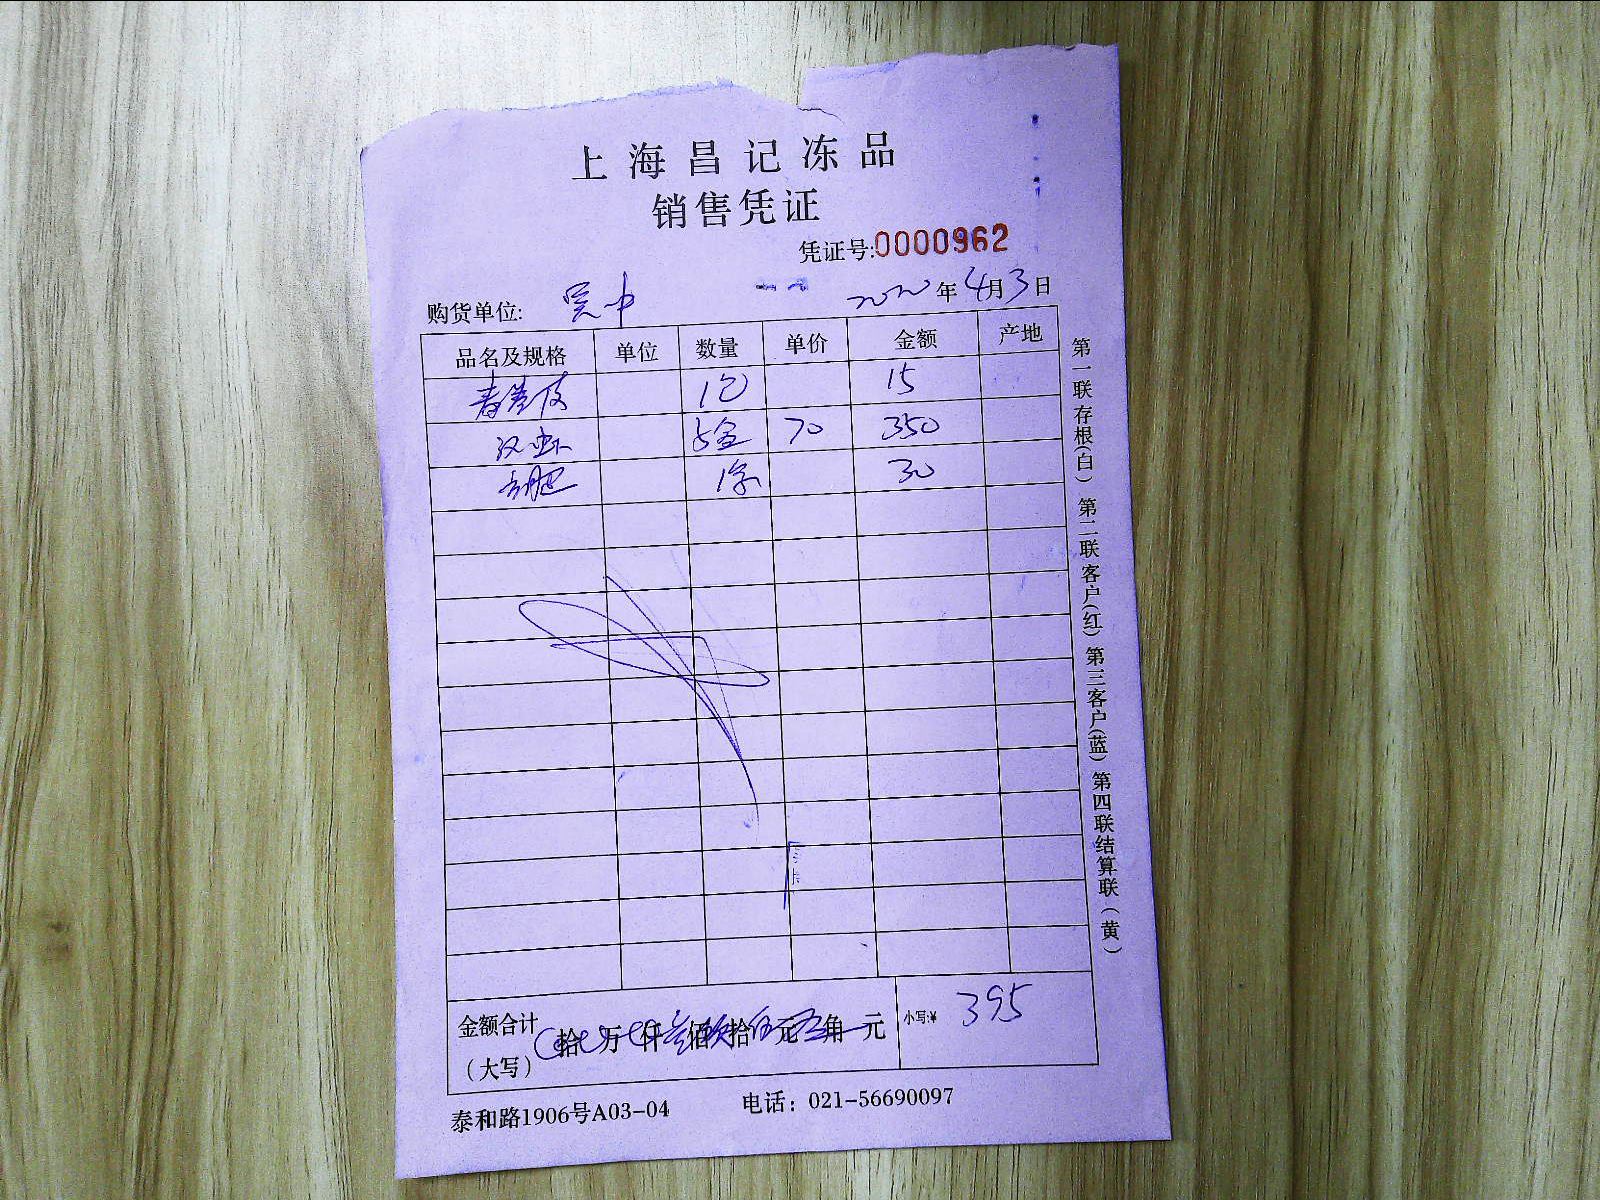 上海昌记冻品
销售凭证
凭证号:0000962
购货单位: 吴中 2020年4月3日
品名及规格 单位 数量 单价 金额 产地
春卷皮 1包 15
汉虾 5盒 70 350
1条 30
金额合计 拾 万 仟 叁佰 玖拾 伍元 角 元 小写:¥ 395
(大写)
泰和路1906号A03-04 电话：021-56690097
第一联存根(白) 第二联客户(红) 第三客户(蓝) 第四联结算联(黄)